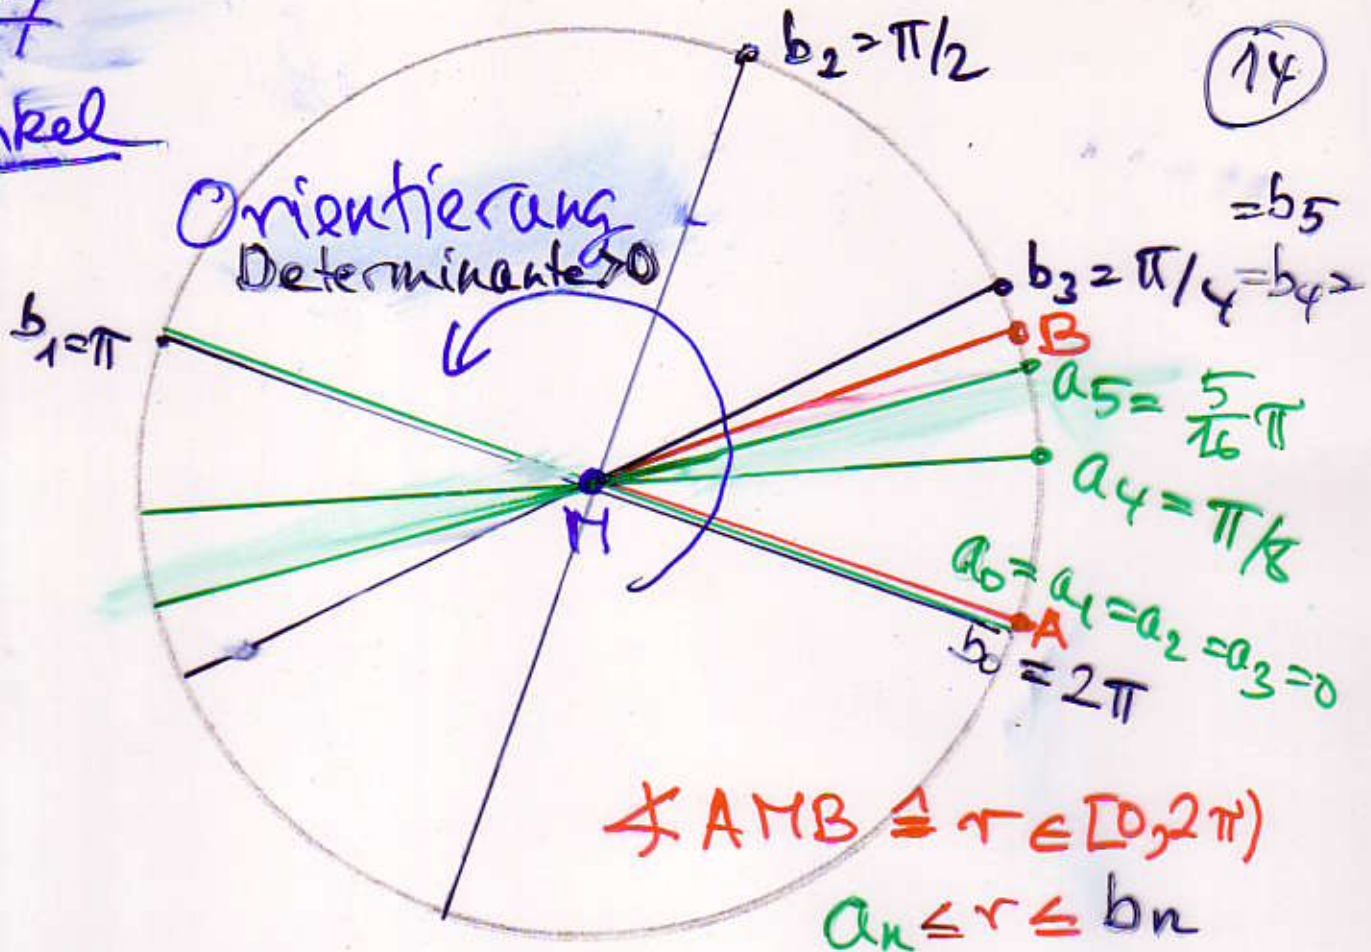 kel
b₂ = π/2
14
Orientierung
Determinante>0
= b5
b₃ = π/4 = b₄ =
b₁=π
B
a5 = 5/16 π
a₄ = π/8
M
a₀ = a₁ = a₂ = a₃ = 0
A
b₀ = 2π
∢ AMB ≙ r ∈ [0,2π)
aₙ ≤ r ≤ bₙ